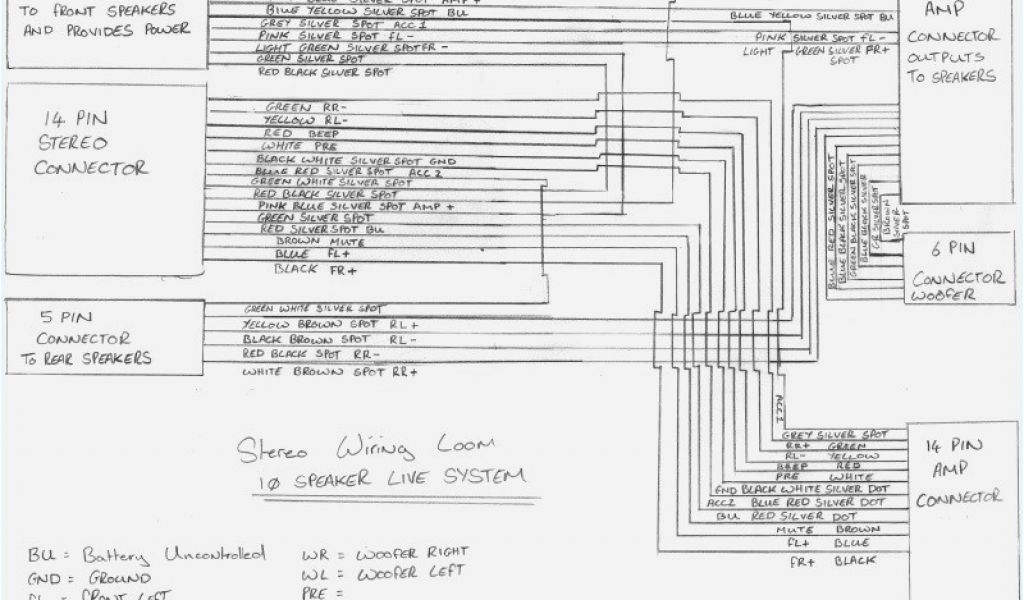 TO FRONT SPEAKERS
AND PROVIDES POWER
BLUE YELLOW SILVER SPOT BU
GREY SILVER SPOT ACC 1
PINK SILVER SPOT FL -
LIGHT GREEN SILVER SPOT FR -
GREEN SILVER SPOT
RED BLACK SILVER SPOT
BLUE YELLOW SILVER SPOT BU
PINK SILVER SPOT FL -
LIGHT GREEN SILVER FR+
SPOT
AMP
CONNECTOR
OUTPUTS
TO SPEAKERS
14 PIN
STEREO
CONNECTOR
GREEN RR-
YELLOW RL-
RED BEEP
WHITE PRE
BLACK WHITE SILVER SPOT GND
BLUE RED SILVER SPOT ACC 2
GREEN WHITE SILVER SPOT
RED BLACK SILVER SPOT
PINK BLUE SILVER SPOT AMP +
GREEN SILVER SPOT
RED SILVER SPOT BU
BROWN MUTE
BLUE FL+
BLACK FR+
BLUE RED SILVER SPOT
BLUE BLACK SILVER SPOT
GREEN BLACK SILVER SPOT
BLUE BLACK SILVER
GR SILVER SPOT
BROWN
SILVER
SPOT
6 PIN
CONNECTOR
WOOFER
5 PIN
CONNECTOR
TO REAR SPEAKERS
GREEN WHITE SILVER SPOT
YELLOW BROWN SPOT RL+
BLACK BROWN SPOT RL-
RED BLACK SPOT RR-
WHITE BROWN SPOT RR+
ACC 1
GREY SILVER SPOT
RR+ GREEN
RL- YELLOW
BEEP RED
PRE WHITE
GND BLACK WHITE SILVER DOT
ACC2 BLUE RED SILVER DOT
BU RED SILVER DOT
MUTE BROWN
FL+ BLUE
FR+ BLACK
14 PIN
AMP
CONNECTOR
Stereo Wiring Loom
10 SPEAKER LIVE SYSTEM
BU = Battery Uncontrolled
GND = GROUND
FL = FRONT LEFT
WR = WOOFER RIGHT
WL = WOOFER LEFT
PRE =